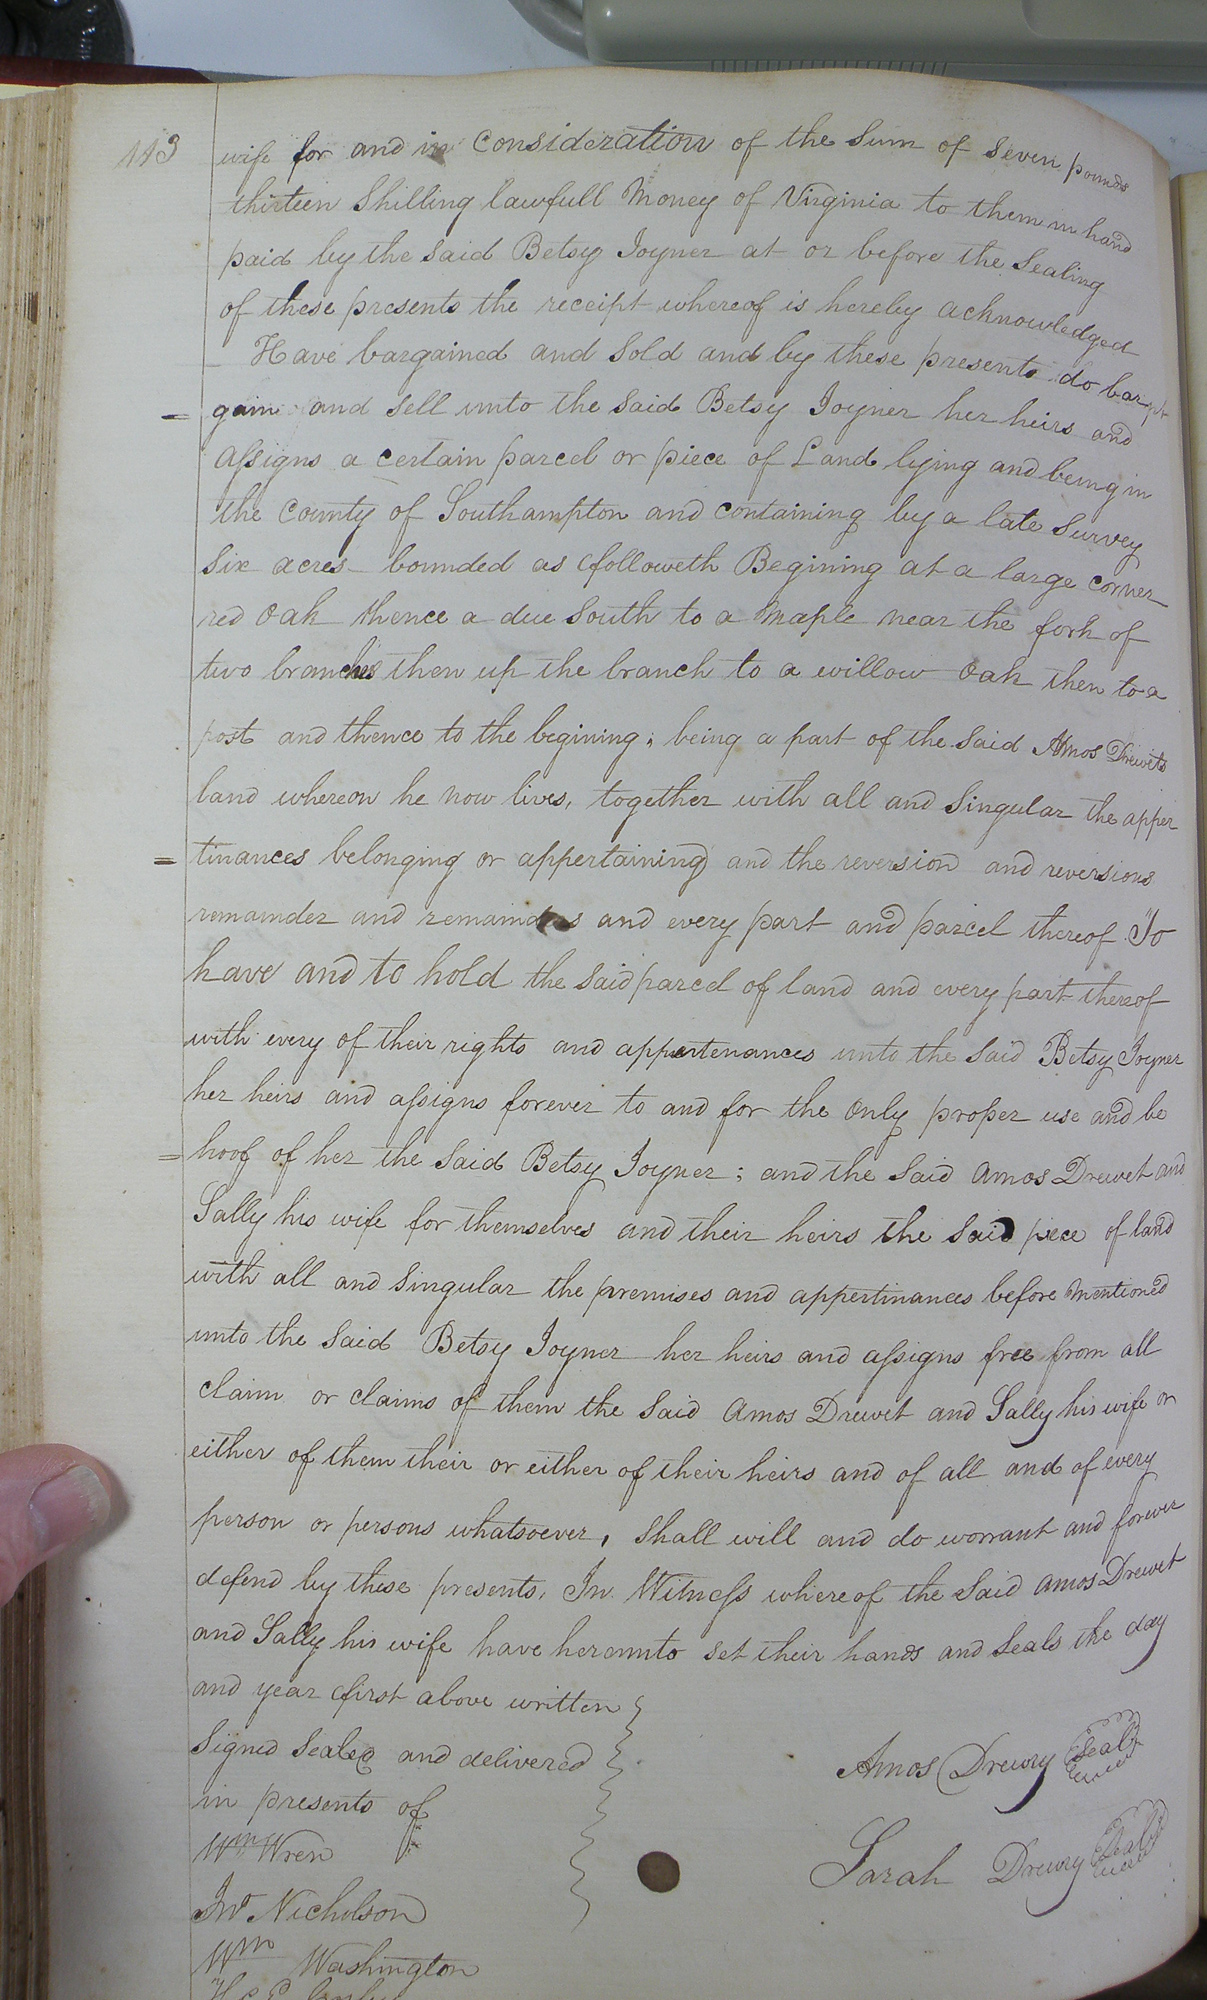 113
wife for and in Consideration of the Sum of Seven pounds
thirteen Shilling lawfull Money of Virginia to them in hand
paid by the said Betsy Joyner at or before the Sealing
of these presents the receipt whereof is hereby acknowledged
Have bargained and sold and by these presents do bar
gain and sell unto the said Betsy Joyner her heirs and
assigns a certain parcel or piece of Land lying and being in
the County of Southampton and containing by a late survey
six acres bounded as followeth Begining at a large corner
red Oak thence a due South to a Maple near the fork of
two branches then up the branch to a willow Oak then to a
post and thence to the begining; being a part of the said Amos Drewits
land whereon he now lives, together with all and Singular the apper
tinances belonging or appertaining and the reversion and reversions
remainder and remainders and every part and parcel thereof To
have and to hold the said parcel of land and every part thereof
with every of their rights and appertenances unto the said Betsy Joyner
her heirs and assigns forever to and for the Only proper use and be
hoof of her the said Betsy Joyner; and the said Amos Drewet and
Sally his wife for themselves and their heirs the said piece of land
with all and Singular the premises and appertinances before Mentioned
unto the said Betsy Joyner her heirs and assigns free from all
claim or claims of them the said Amos Drewet and Sally his wife or
either of them their or either of their heirs and of all and of every
person or persons whatsoever, Shall will and do worrant and forever
defend by these presents, In Witness whereof the said Amos Drewet
and Sally his wife have hereunto set their hands and Seals the day
and year first above written
Signed Sealed and delivered
in presents of
Amos Drewry Seal
Wm Wren
Sarah Drewry Seal
Jno Nicholson
Wm Washington